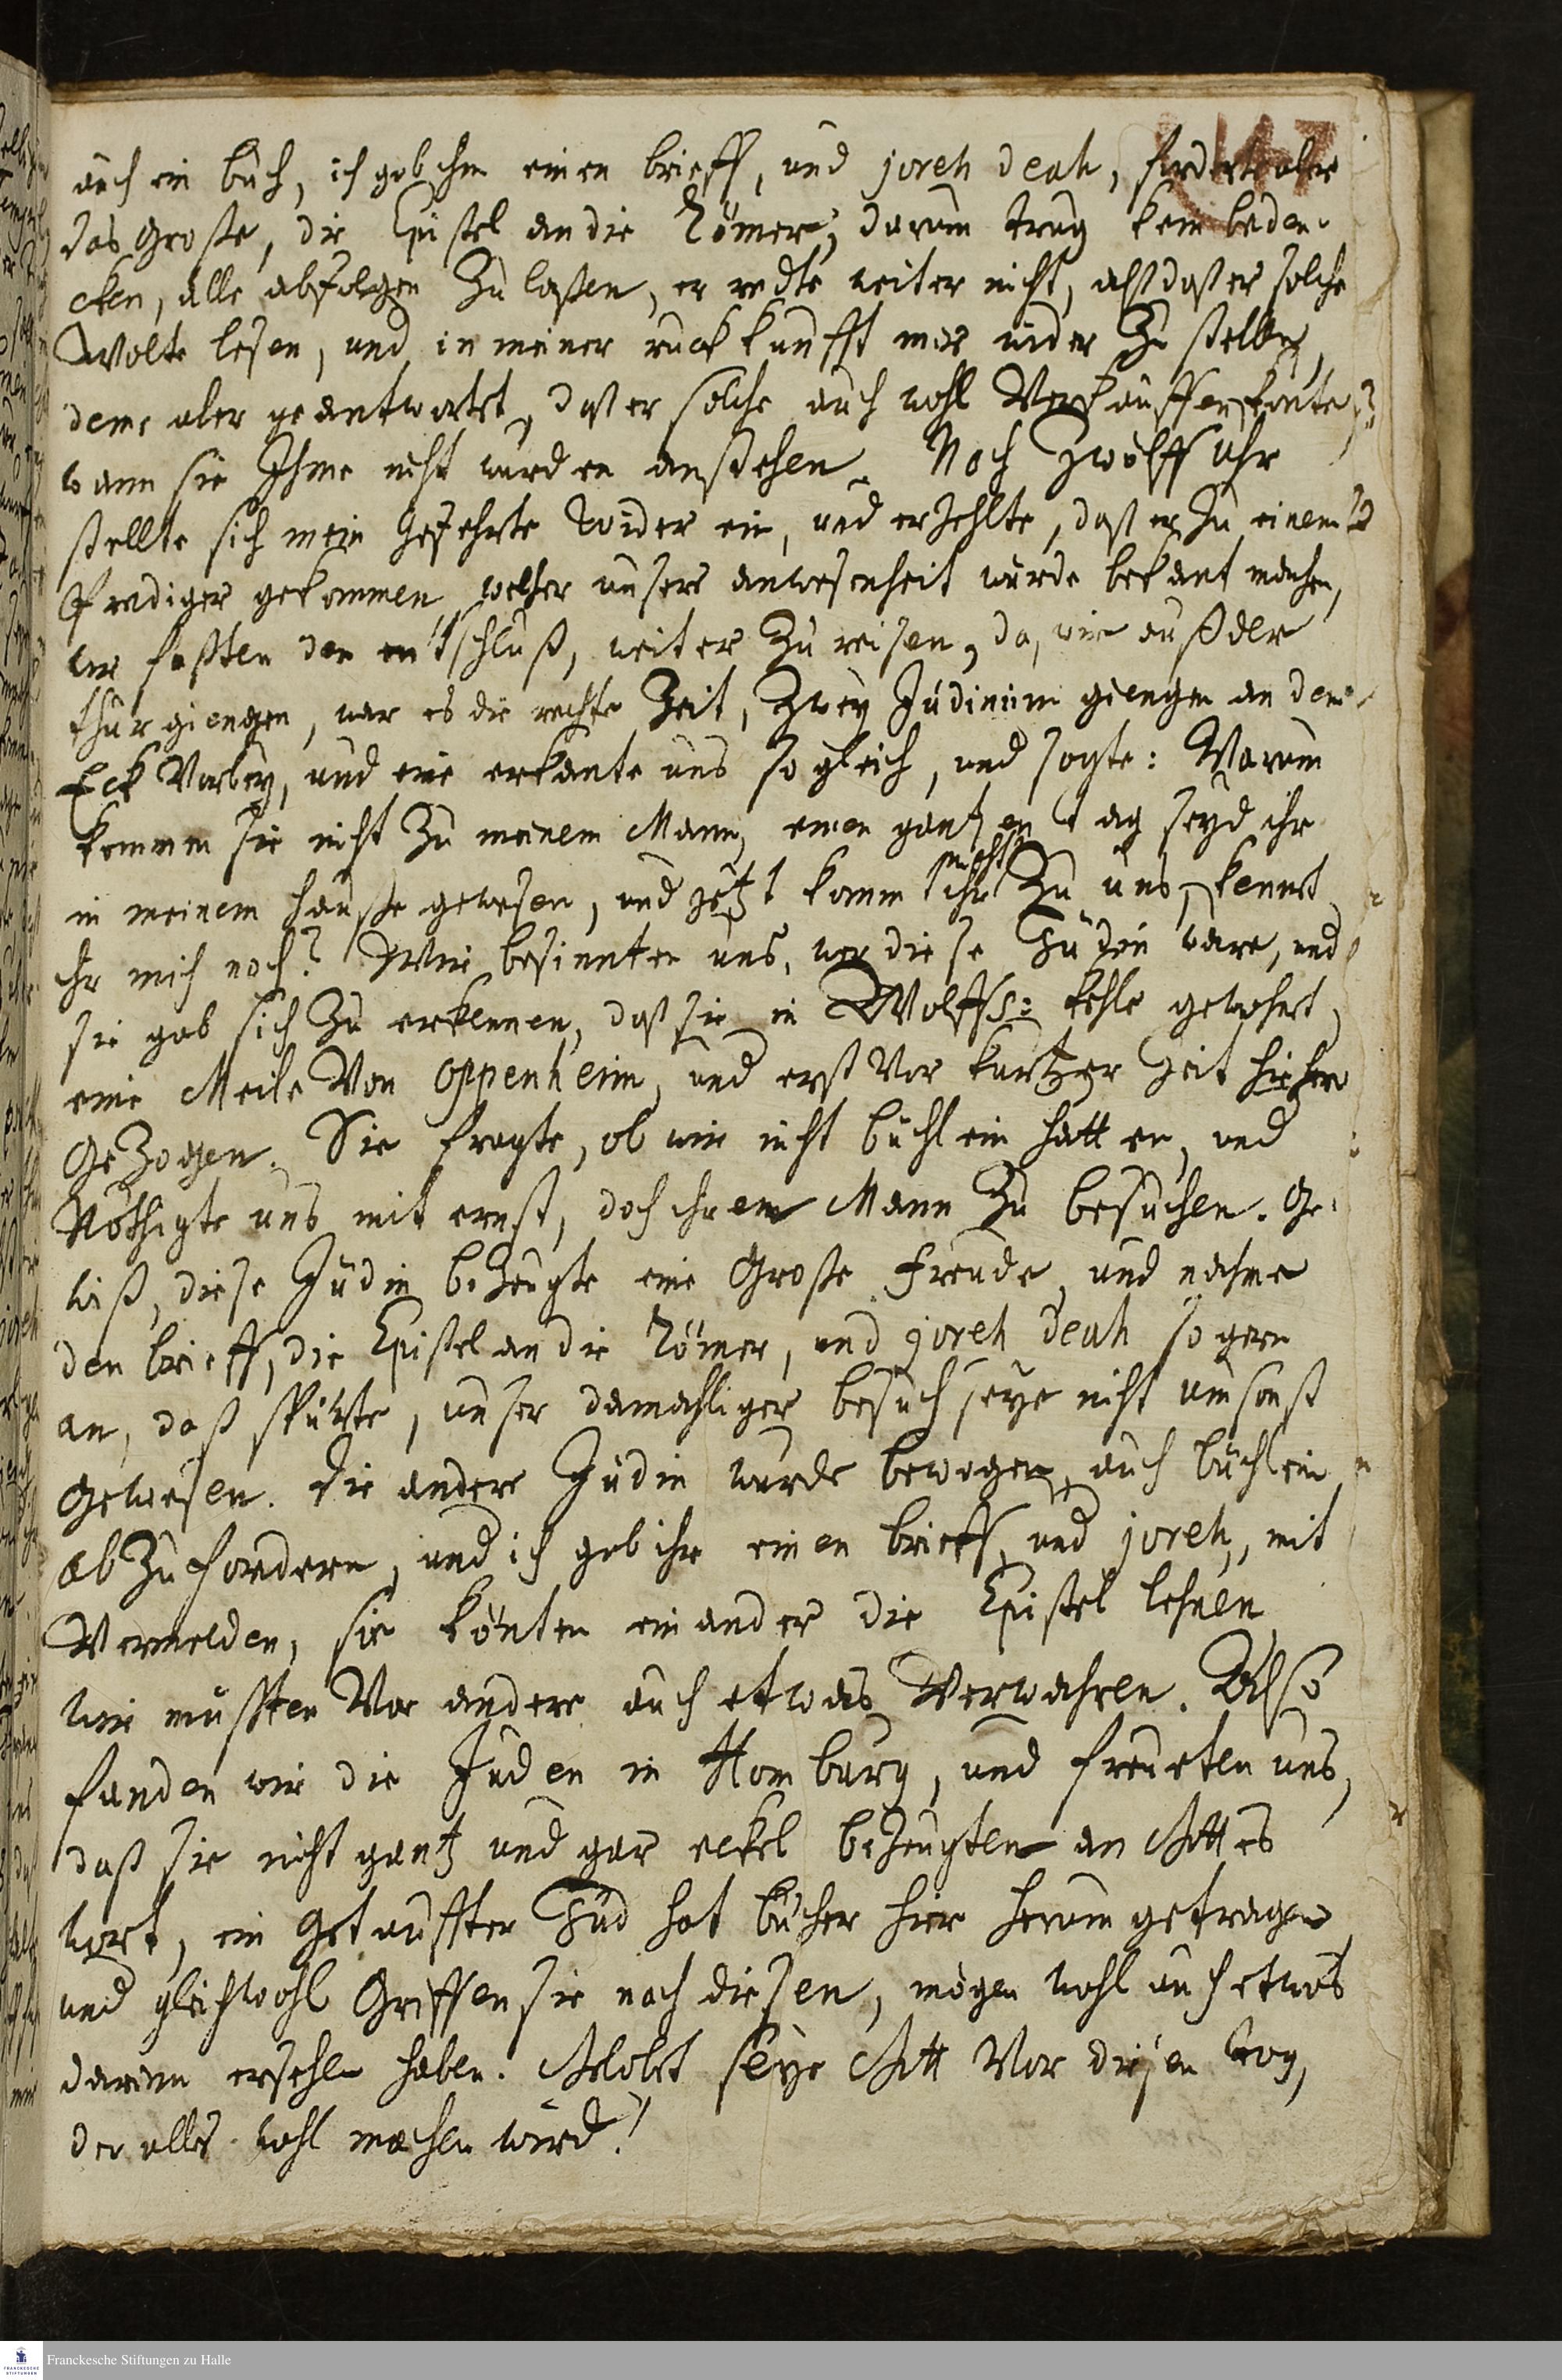 auch ein buch, ich gab ihm einen brieff, und joreh deah, forderte aber
das Große, die Epistel an die Römer, darum trug kein beden-
cken, alle abfolgen Zu laßen, er redte weiter nicht, alß daß er solche
Wolte lesen, und in meiner ruckkunfft mir wider Zu stellen,
deme aber geantwortet, daß er solche auch wohl Verkauffen könte,
wann sie Ihme nicht würden anstehen. Nach Zwölff Uhr
stellte sich mein Gefehrte wider ein, und erzehlte, daß er Zu einem
Prediger gekommen, welcher unsere anwesenheit würde bekant machen,
wir faßten den entschluß, weiter Zu reisen, da wir auß der
thür giengen, war es die rechte Zeit, Zwey Jüdinnen giengen an dem
Eck Vorbey, und eine erkante uns so gleich, und sagte: Warum
kommen sie nicht Zu meinem Mann, einen gantzen tag seyd ihr
in meinem hauße gewesen, und jetzt kommt ihr nicht Zu uns, kennet
ihr mich noch? Wir besinnten uns, wer diese Jüdin ware, und
sie gab sich Zu erkennen, daß sie in Wolffs: kehle gewohnt,
eine Meile Von Oppenheim, und erst Vor kurtzer Zeit hieher
GeZogen. Sie fragte, ob wir nicht büchlein hatten, und
Nöthigte uns mit ernst, doch ihren Mann Zu besuchen. Ge-
wiß, diese Jüdin beZeugte eine Große freude, und nahme
den brieff, die Epistel an die Römer, und joreh deah so gern
an, daß spürte, unser damahliger besuch seye nicht umsonst
Gewesen. die andere Jüdin wurde bewogen, auch büchlein
abZufordern, und ich gab ihr einen brieff, und joreh, mit
Vermelden, sie könten einander die Epistel lehnen,
wir müßten Vor andere auch etwas Verwahren. Also
fanden wir die Juden in Homburg, und freueten uns,
daß sie nicht gantz und gar eckel beZeugten an Gottes
wort, ein Getauffter Jud hat bücher hier herum getragen,
und gleichwohl Griffen sie nach diesen, mögen wohl auch etwas
darinn ersehen haben. Gelobet seye Gott Vor diesen tag,
der alles wohl machen wird!
Franckesche Stiftungen zu Halle